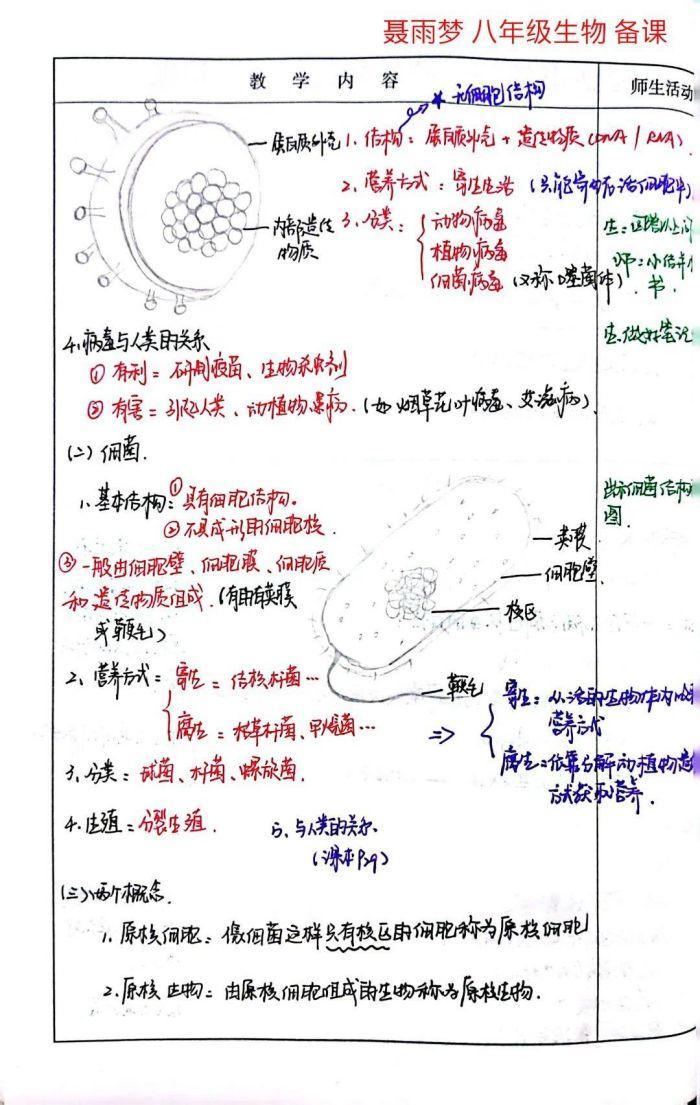 聂雨梦 八年级生物 备课
教学内容
师生活动
★ 无细胞结构
蛋白质外壳
1. 结构：蛋白质外壳 + 遗传物质（DNA / RNA）.
2. 营养方式：寄生生活（只能寄生在活细胞中）
内部遗传
物质
3. 分类：
动物病毒
植物病毒
细菌病毒（又称噬菌体）
师：小结并
书.
生：做好笔记
4. 病毒与人类的关系
① 有利：研制疫苗、生物杀虫剂
② 有害：引起人类、动植物患病.（如烟草花叶病毒、艾滋病）
（二）细菌.
1. 基本结构：① 具有细胞结构。
② 不具成形的细胞核.
出示细菌结构
图.
③ 一般由细胞壁、细胞膜、细胞质
和遗传物质组成.（有的有荚膜
或鞭毛）
荚膜
细胞壁
核区
鞭毛
2. 营养方式：
寄生：结核杆菌…
腐生：枯草杆菌、甲烷菌…
⇒
寄生：从活的生物体内
营养方式
腐生：依靠分解动植物遗
式获取营养.
3. 分类：球菌、杆菌、螺旋菌.
4. 生殖：分裂生殖.
5. 与人类的关系.
（课本P59）
（三）两个概念.
1. 原核细胞：像细菌这样只有核区的细胞称为原核细胞
2. 原核生物：由原核细胞组成的生物称为原核生物.